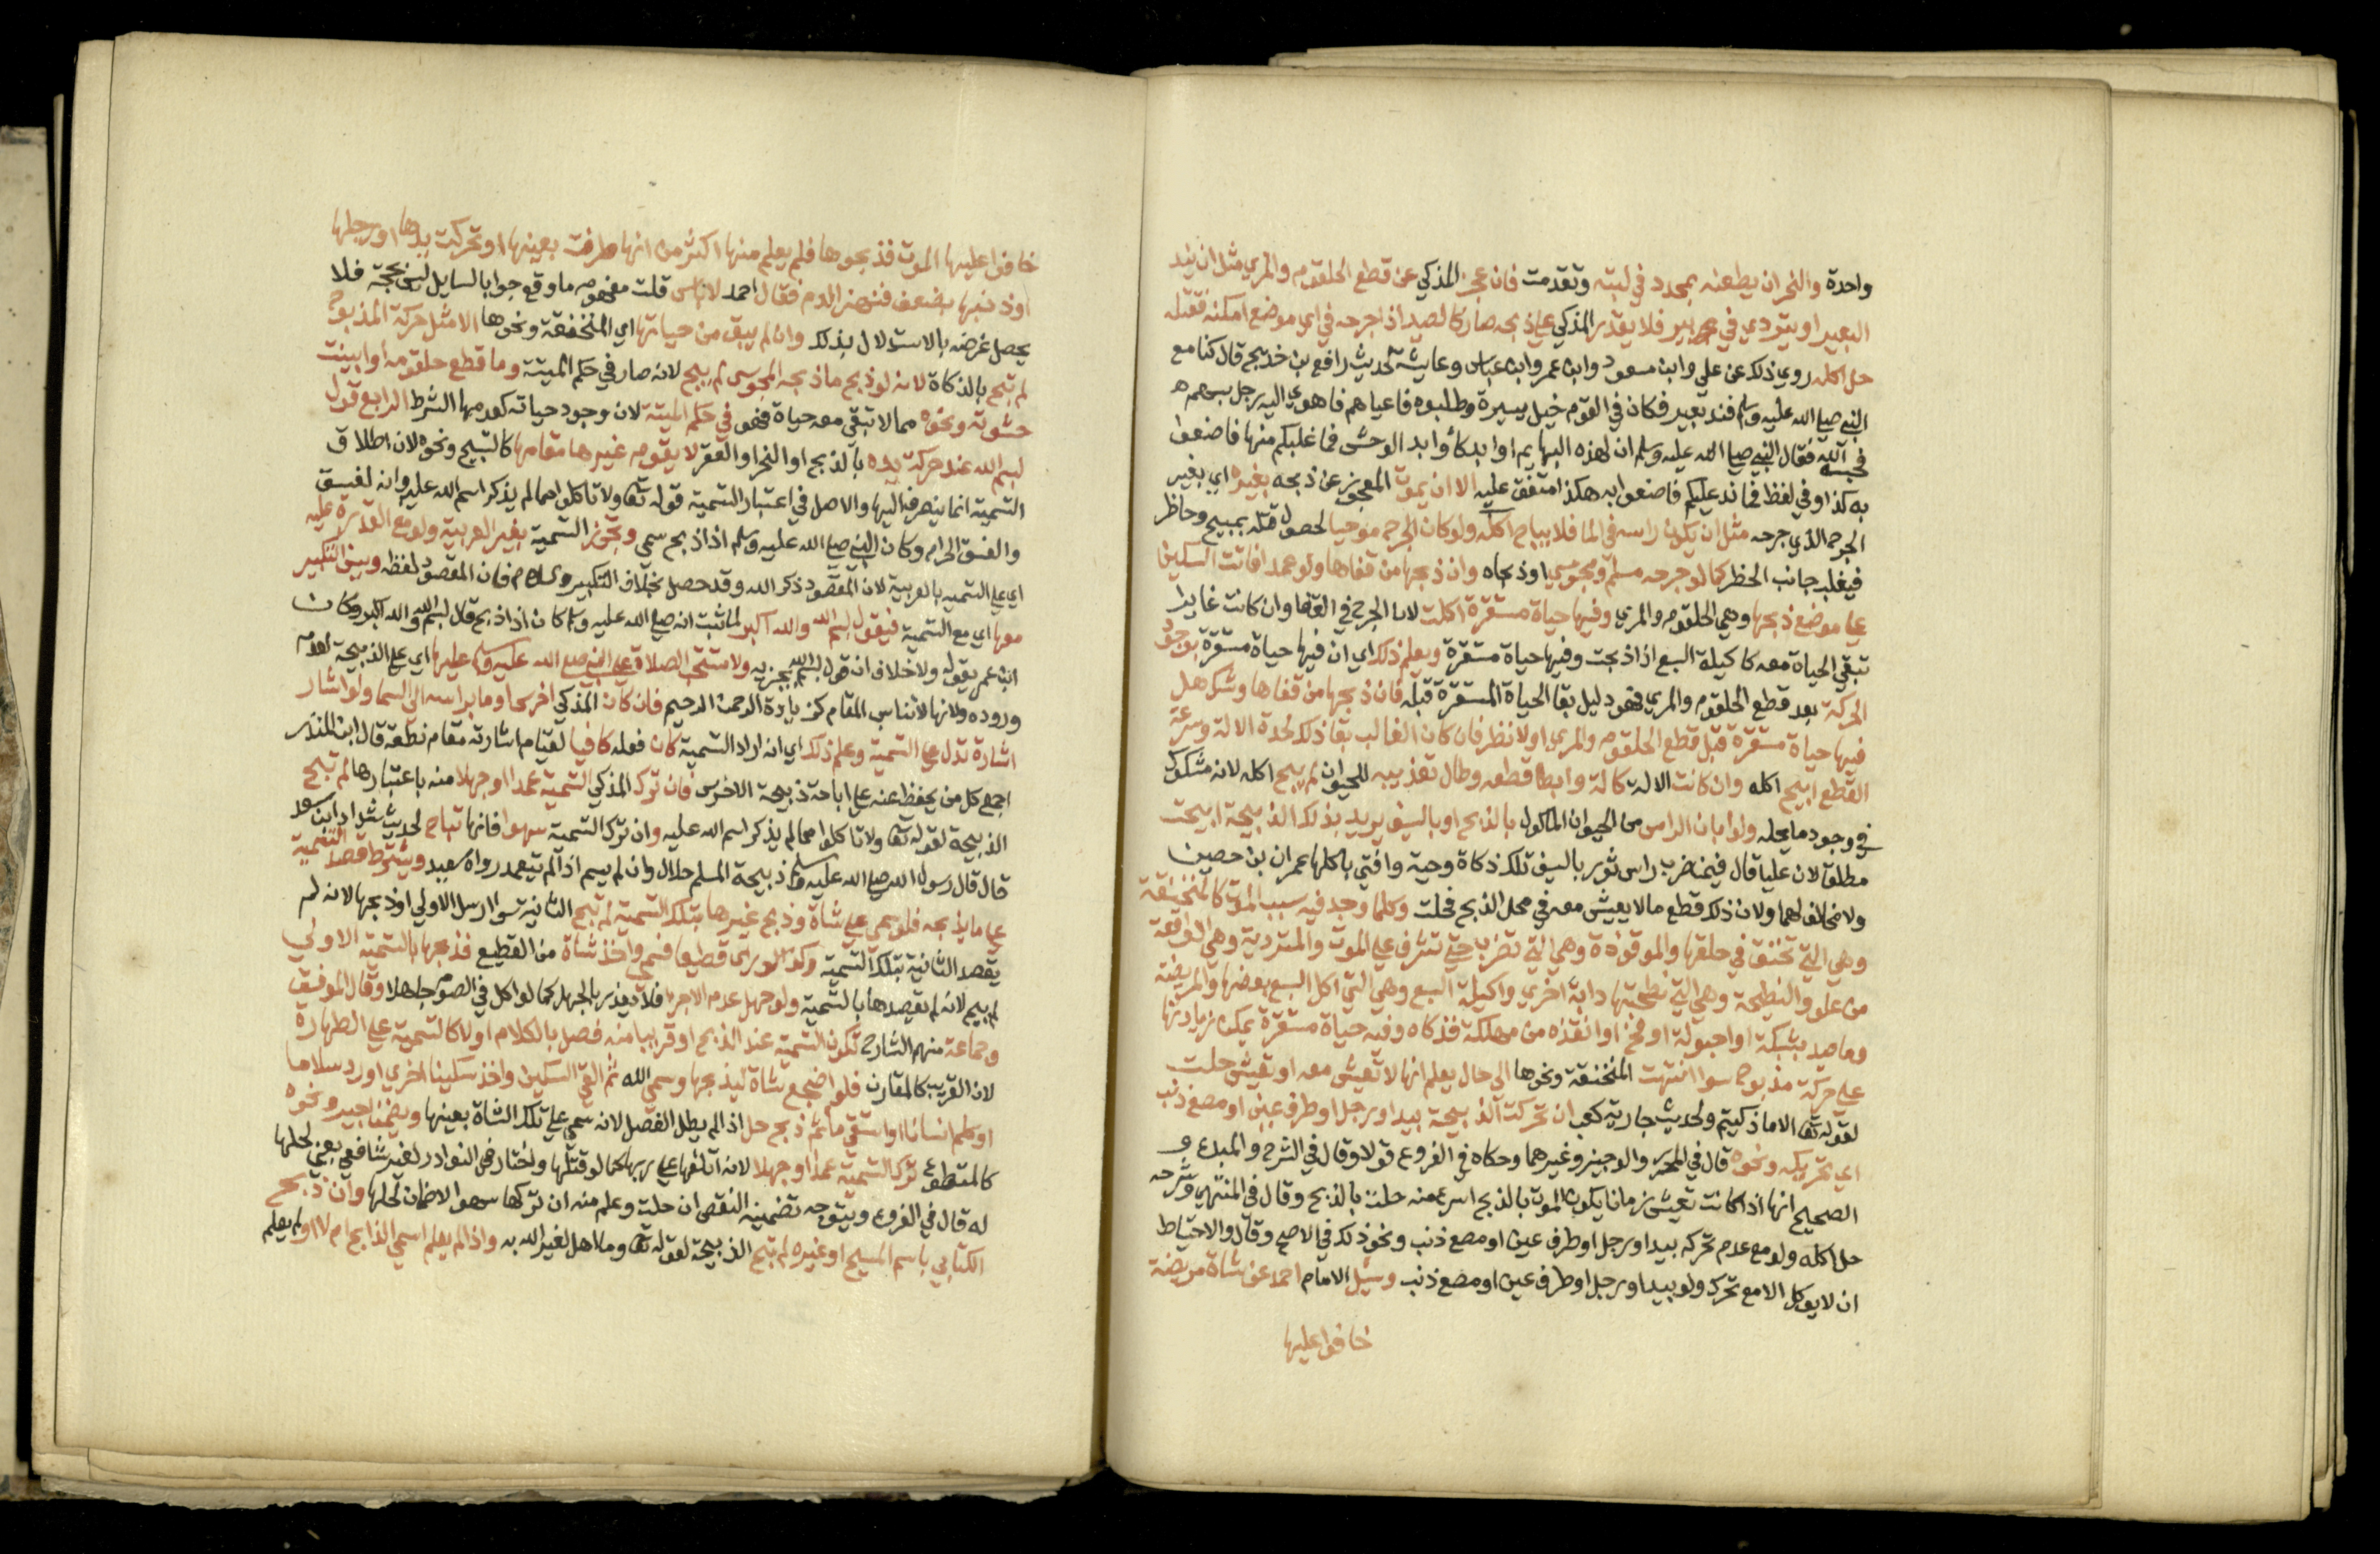 واحدة والنحر ان يطعنه بمحدد في لبته وتقدمت فان عجز المذكي عن قطع الحلقوم والمري مثل ان يند
البعير او يتردي في بير فلا يقدر المذكي علي ذبحه صار كالصيد اذا جرحه في اي موضع امكنه فقتله
حل اكله روي ذلك عن علي وابن مسعود وابن عمر وابن عباس وعايشة لحديث رافع بن خديج قال كنا مع
النبي صلي الله عليه وسلم فند بعير فكان في القوم خيل يسيرة وطلبوه فاعياهم فاهوي اليه رجل بسهم
فحبسه الله فقال النبي صلي الله عليه وسلم ان لهذه البهايم اوابد كأوابد الوحش فما غلبكم منها فاصنعوا
به كذا وفي لفظ فما ند عليكم فاصنعوا به هكذا متفق عليه الا ان يموت المعجوز عن ذبحه بغيره اي بغير
الجرح الذي جرحه مثل ان يكون راسه في الما فلا يباح اكله ولو كان الجرح موحيا لحصول قتله بمبيح وحاظر
فيغلب جانب الحظر كما لو جرحه مسلم ومجوسي او ذبحاه وان ذبحها من قفاها ولو عمدا فاتت السكين
علي موضع ذبحها وهي الحلقوم والمري وفيها حياة مستقرة اكلت لان الجرح في القفا وان كانت غايرا
تبقي الحياة معه كاكيلة السبع اذا ذبحت وفيها حياة مستقرة ويعلم ذلك اي ان فيها حياة مستقرة بوجود
الحركة بعد قطع الحلقوم والمري فهو دليل بقا الحياة المستقرة قبله فان ذبحها من قفاها وشك هل
فيها حياة مستقرة قبل قطع الحلقوم والمري اولا نظر فان كان الغالب بقا ذلك لحدة الالة وسرعة
القطع ابيح اكله وان كانت الالة كالة وابطا قطعه وطال تعذيبه للحيوان لم يبح اكله لانه مشكوك
في وجود ما يحله ولو ابان الراس من الحيوان الماكول بالذبح او بالسيف يريد بذلك الذبيحة ابيحت
مطلقا لان عليا قال فيمن ضرب راس ثور بالسيف تلك ذكاة وحية وافتي باكلها عمران بن حصين
ولا مخالف لهما ولان ذلك قطع ما لا يعيش معه في محل الذبح فحلت وكلما وجد فيه سبب الموت كالمنخنقة
وهي التي تخنق في حلقها والموقوذة وهي التي تضرب حتي تشرف علي الموت والمتردية وهي الواقعة
من علو والنطيحة وهي التي نطحتها دابة اخري واكيلة السبع وهي التي اكل السبع بعضها والمريضة
وما صيد بشبكة او احبولة او فخ او انقذه من مهلكة فذكاه وفيه حياة مستقرة يمكن زيادتها
علي حركة مذبوح سوا انتهت المنخنقة ونحوها الي حال يعلم انها لا تعيش معه او تعيش حلت
لقوله تعا الا ما ذكيتم ولحديث جارية كعب ان تحركت الذبيحة بيد او رجل او طرف عين او مصع ذنب
اي تحريكه ونحوه قال في المحرر والوجيز وغيرهما وحكاه في الفروع قولا وقال في الشرح والمبدع و
الصحيح انها اذا كانت تعيش زمانا يكون الموت بالذبح اسرع منه حلت بالذبح وقال في المنتهي وشرحه
حل اكله ولو مع عدم تحركه بيد او رجل او طرف عين او مصع ذنب ونحو ذلك في الاصح وقال والاحتياط
ان لا يوكل الا مع تحرك ولو بيد او رجل او طرف عين او مصع ذنب وسئل الامام احمد عن شاة مريضة
خافوا عليها
خافوا عليها الموت فذبحوها فلم يعلم منها اكثر من انها طرفت بعينها او تحركت يدها او رجلها
او ذنبها بضعف فنهر الدم فقال احمد لا باس قلت مفهوم ما وقع جوابا لسايل ليس بحجة فلا
يحصل غرضه بالاستدلال بذلك وان لم يبق من حياتها اي المنخنقة ونحوها الا مثل حركة المذبوح
لم تبح بالذكاة لانه لو ذبح ما ذبحه المجوسي لم يبح لانه صار في حكم الميتة وما قطع حلقومه او ابينت
حشوته ونحوه مما لا تبقي معه حياة فهو في حكم الميتة لان وجود حياته كعدمها الشرط الرابع قول
بسم الله عند حركة يده بالذبح او النحر او العقر لا يقوم غيرها مقامها كالتسبيح ونحوه لان اطلاق
التسمية انما ينصرف اليها والاصل في اعتبار التسمية قوله تعا ولا تاكلوا مما لم يذكر اسم الله عليه وانه لفسق
والفسق الحرام وكان النبي صلي الله عليه وسلم اذا ذبح سمي وتجوز التسمية بغير العربية ولو مع القدرة عليه
اي علي التسميه بالعربية لان المقصود ذكر الله وقد حصل بخلاف التكبير وسلام فان المقصود لفظه ويسن التكبير
معها اي مع التسمية فيقول بسم الله والله اكبر لما ثبت انه صلي الله عليه وسلم كان اذا ذبح قال بسم الله والله اكبر وكان
ابن عمر يقوله ولا خلاف ان قول بسم الله يجزيه ولا تستحب الصلاة علي النبي صلي الله عليه وسلم عليها اي علي الذبيحة لعدم
وروده ولانها لا تناسب المقام كزيادة الرحمن الرحيم فان كان المذكي اخرس اوما براسه الي السما ولو اشار
اشارة تدل علي التسمية وعلم ذلك اي انه اراد التسمية كان فعله كافيا لقيام اشارته مقام نطقه قال ابن المنذر
اجمع كل من يحفظ عنه علي اباحة ذبيحة الاخرس فان ترك المذكي التسمية عمدا او جهلا منه باعتبارها لم تبح
الذبيحة لقوله تعا ولا تاكلوا مما لم يذكر اسم الله عليه وان ترك التسمية سهوا فانها تباح لحديث شداد ابن سعد
قال قال رسول الله صلي الله عليه وسلم ذبيحة المسلم حلال وان لم يسم اذا لم يتعمد رواه سعيد ويشترط قصد التسمية
علي ما يذبحه فلو سمي علي شاة وذبح غيرها بتلك التسمية لم تبح الثانية سوا ارسل الاولي او ذبحها لانه لم
يقصد الثانية بتلك التسمية وكذا لو راي قطيعا فسمي واخذ شاة من القطيع فذبحها بالتسمية الاولي
لم يبح لانه لم يقصدها بالتسمية ولو جهل عدم الاجزا فلا يعذر بالجهل كما لو اكل في الصوم جاهلا وقال الموفق
وجماعة منهم الشارح تكون التسمية عند الذبح او قريبا منه فصل بالكلام اولا كالتسمية علي الطهارة
لان القريب كالمقارن فلو اضجع شاة ليذبحها وسمي الله ثم القي السكين واخذ سكينا اخري او رد سلاما
او كلم انسانا او استقي ما ثم ذبح حل اذا لم يطل الفصل لانه سمي علي تلك الشاة بعينها ويضمن اجير ونحوه
كالمتطوع ترك التسمية عمدا او جهلا لانه اتلفها علي ربها كما لو قتلها واختار في النوادر لغير شافعي يعني لحلها
له قال في الفروع ويتوجه تضمينه النقص ان حلت وعلم منه ان تركها سهوا لا ضمان لحلها وان ذبح
الكتابي باسم المسيح او غيره لم تبح الذبيحة لقوله تعا وما اهل لغير الله به واذا لم يعلم اسمي الذابح ام لا او لم يعلم